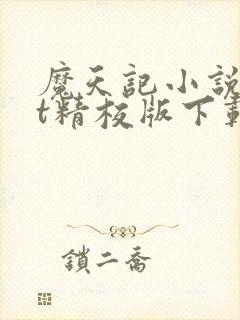 魔天記小說
t精校版下載
鎖二喬